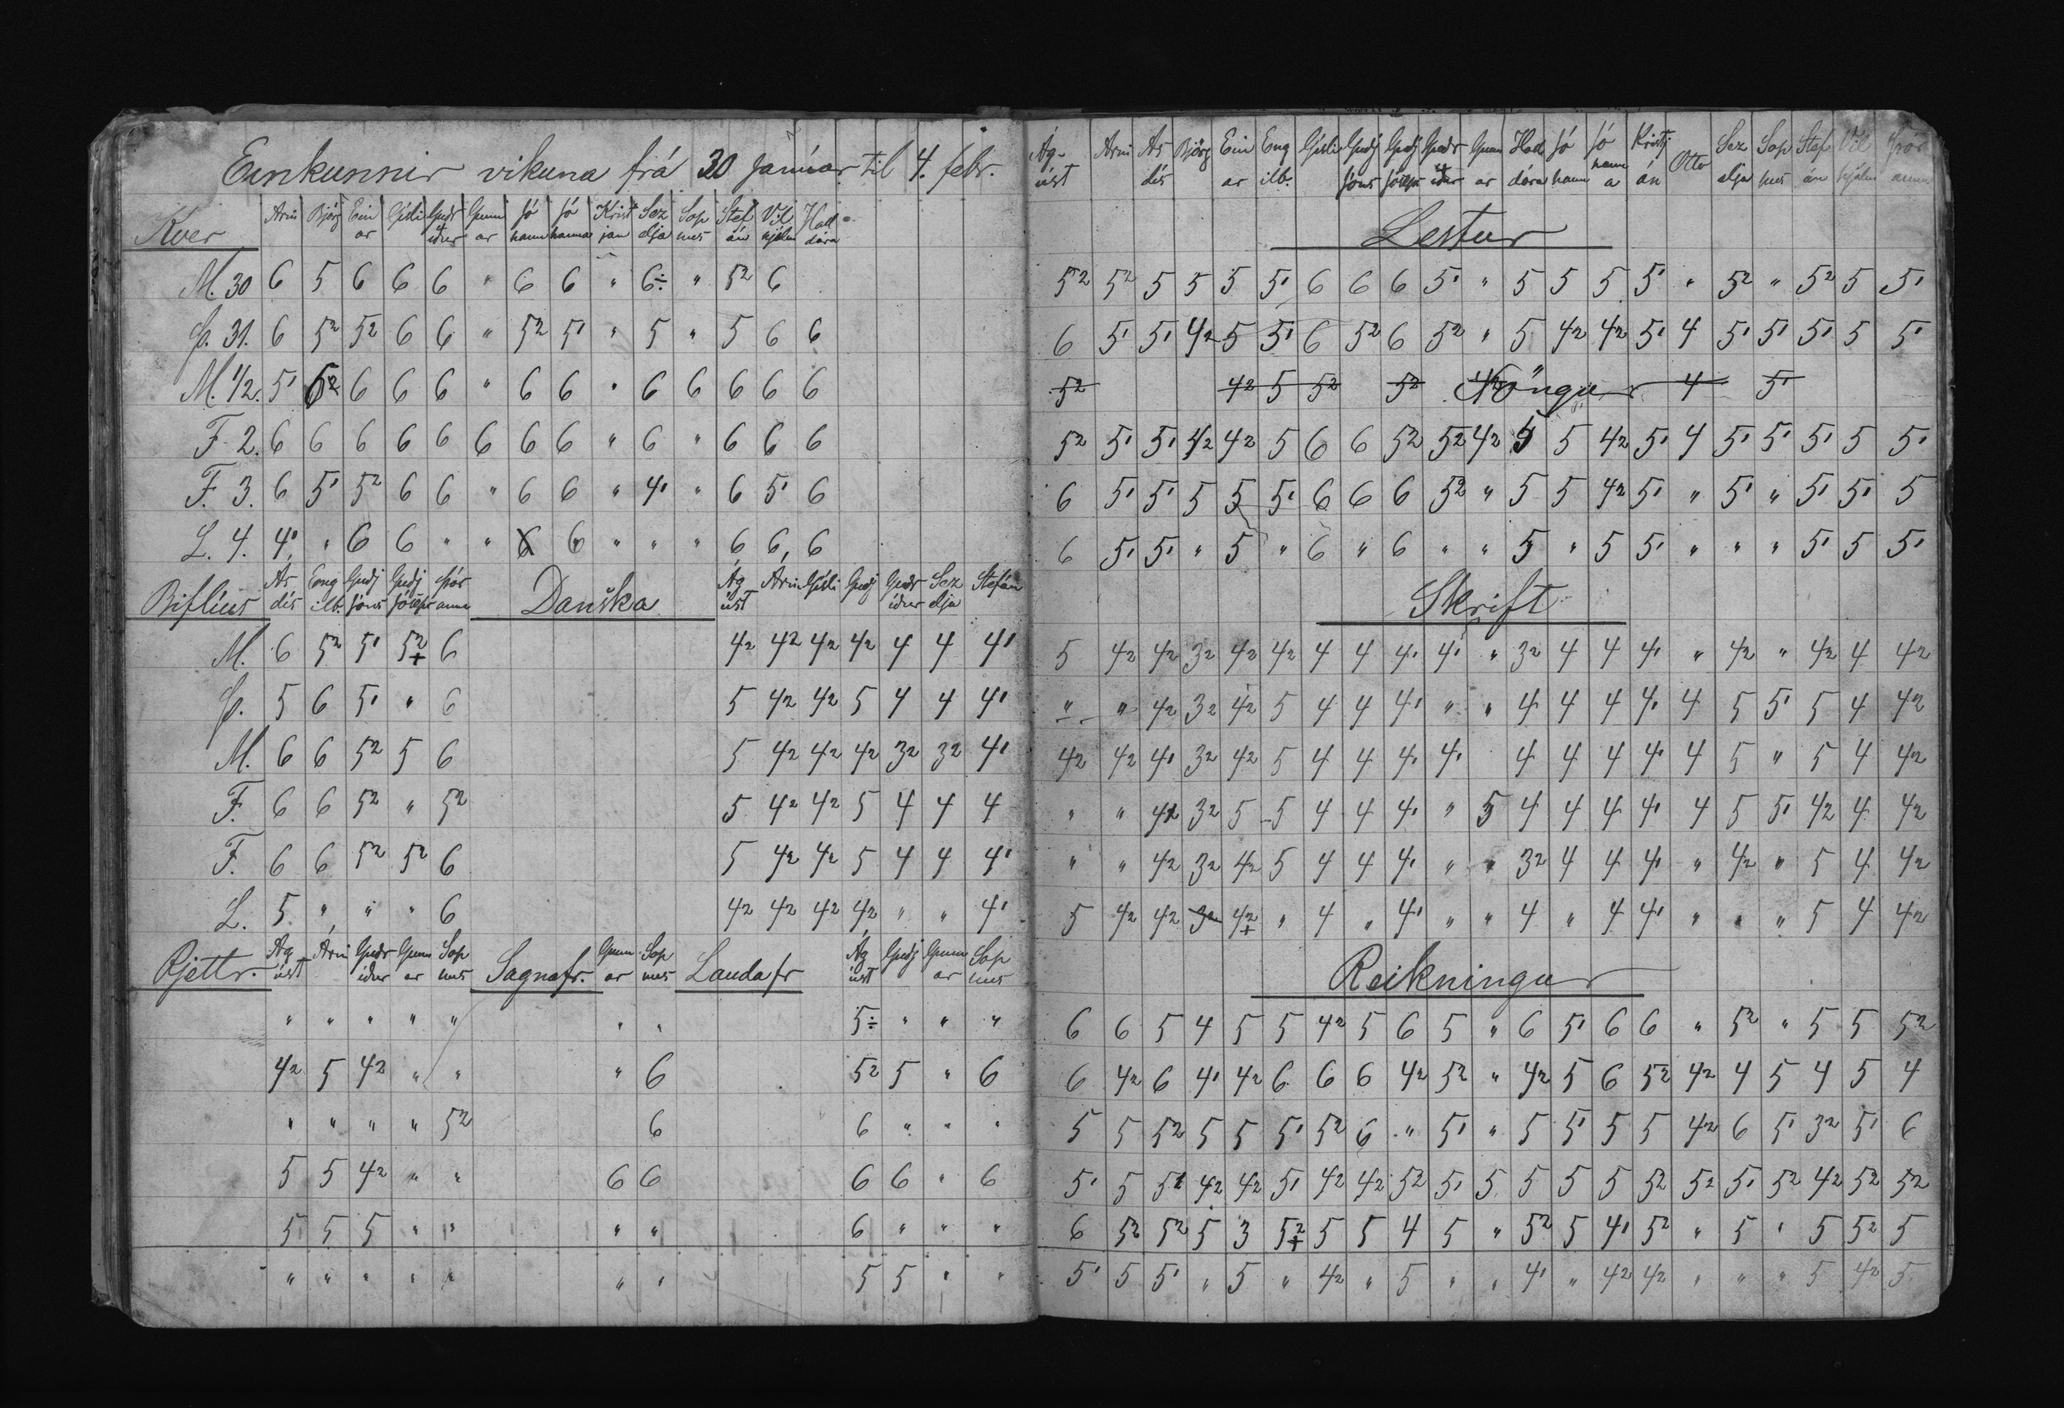 Einkunnir vikuna frá 30 janúar til 4. febr.
Kver Árni Björg Einar Gísli Guðríður Gunnar Jóhann Jóhanna Kristján Sezelja Sophus Stefán Vilhjálm Halldóra
M. 30 6 5 6 6 6 " 6 6 " 6÷ " 52 6
Þ. 31. 6 52 52 6 6 " 52 51 " 5 " 5 6 6
M. 1/2. 51 62 6 6 6 " 6 6 " 6 6 6 6 6
F. 2. 6 6 6 6 6 6 6 6 " 6 " 6 6 6
F. 3. 6 51 52 6 6 " 6 6 " 41 " 6 51 6
L. 4. 41 " 6 6 " " 6 6 " " " 6 6 6
Biflíus Ásdís Engilb. Guðj Jóns Guðj Jóseps Þóranna Danska Ágúst Árni Gísli Guðj Guðríður Sezelja Stefán
M. 6 52 51 52+ 6 42 42 42 42 4 4 41
Þ. 5 6 51 " 6 5 42 42 5 4 4 41
M. 6 6 52 5 6 5 42 42 42 32 32 41
F. 6 6 52 " 52 5 42 42 5 4 4 4
F. 6 6 52 52 6 5 42 42 5 4 4 41
L. 5 " " " 6 42 42 42 42 " " 41
Rjettr. Ágúst Árni Guðríður Gunnar Sophus Sagnafr. Gunnar Sophus Landafr Ágúst Guðj Gunnar Sophus
" " " " " " " 5÷ " " "
42 5 42 " " " 6 52 5 " 6
" " " " 52 6 6 " " "
5 5 42 " " 6 6 6 6 " 6
5 5 5 " " " " 6 " " "
" " " " " " " 5 5 " "
Ágúst Árni Ásdís Björg Einar Engilb. Gísli Guðj Jóns Guðj Jóseps Guðríður Gunnar Halldóra Jóhann Jóhanna Kristján Otto Sezelja Sophus Stefán Vilhjálm Þóranna
Lestur
52 52 5 5 5 51 6 6 6 51 " 5 5 5 51 " 52 " 52 5 51
6 51 51 42 5 51 6 52 6 52 " 5 42 42 51 4 51 51 51 5 51
52 42 5 52 52 Söngur 4 51
52 51 51 42 42 5 6 6 52 52 42 5 5 42 51 4 51 51 51 5 51
6 51 51 5 5 51 6 6 6 52 " 5 5 42 51 " 51 " 51 51 5
6 51 51 " 5 " 6 " 6 " " 5 " 5 51 " " " 51 5 51
Skrift
5 42 42 32 42 42 4 4 41 41 " 32 4 4 41 " 42 " 42 4 42
" " 42 32 42 5 4 4 41 " " 4 4 4 41 4 5 51 5 4 42
42 42 41 32 42 5 4 4 41 41 4 4 4 41 4 5 " 5 4 42
" " 42 32 5 5 4 4 41 " 5 4 4 4 41 4 5 51 42 4 42
" " 42 32 42 5 4 4 41 " " 32 4 4 41 " 42 " 5 4 42
5 42 42 32 42+ " 4 " 41 " " 4 " 4 41 " " " 5 4 42
Reikningur
6 6 5 4 5 5 42 5 6 5 " 6 51 6 6 " 52 " 5 5 52
6 42 6 41 42 6 6 6 42 52 " 42 5 6 52 42 4 5 4 5 4
5 5 52 5 5 51 52 6 " 51 " 5 51 5 5 42 6 51 32 51 6
51 5 51 42 42 51 42 42 52 51 5 5 5 5 52 52 51 52 42 52 52
6 52 52 5 3 52+ 5 5 4 5 " 52 5 41 52 " 5 " 5 52 5
51 5 51 " 5 " 42 " 5 " " 41 " 42 42 " " " 5 42 5